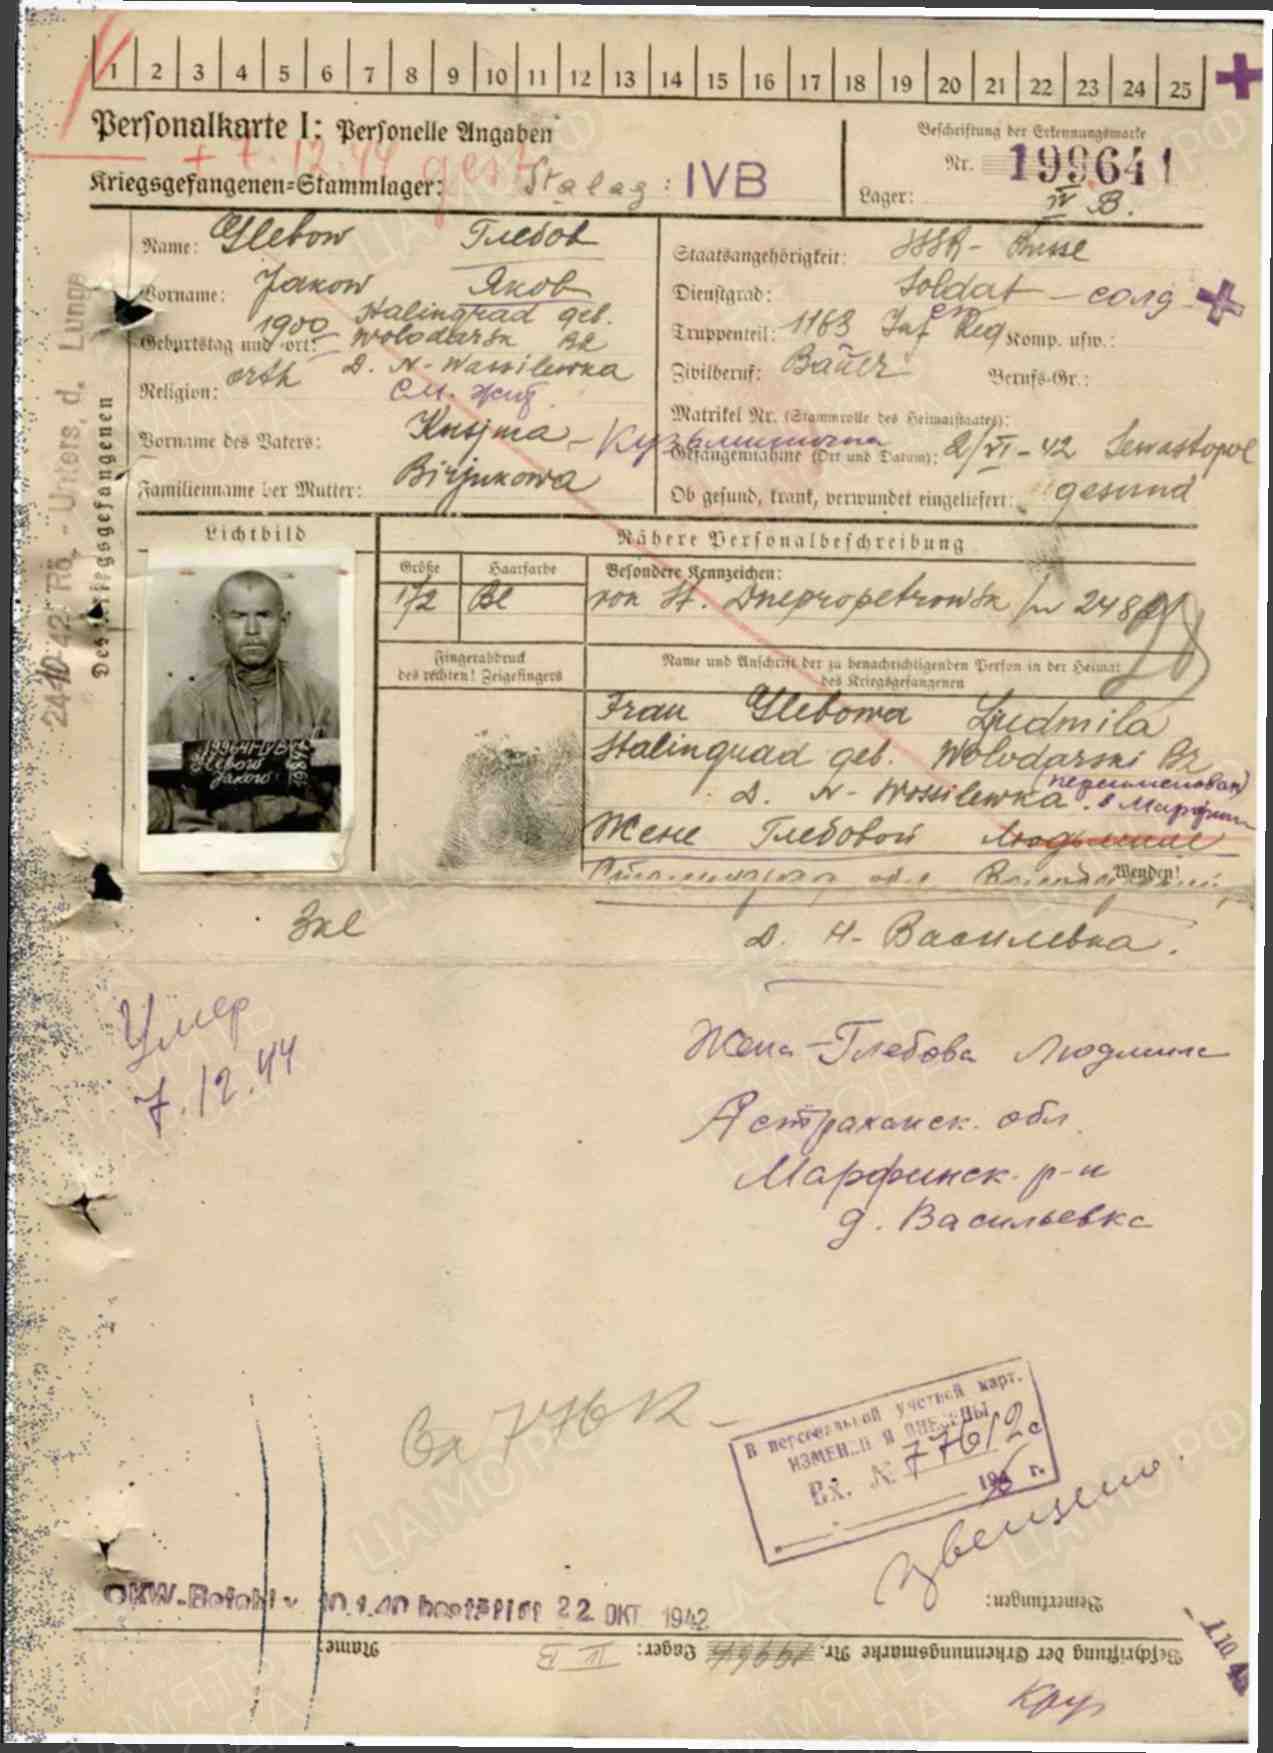 1 2 3 4 5 6 7 8 9 10 11 12 13 14 15 16 17 18 19 20 21 22 23 24 25
Personalkarte I: Personelle Angaben
+ 7.12.44 gest.
Kriegsgefangenen=Stammlager: Stalag: IVB
Beschriftung der Erkennungsmarke
Nr. 199641
Lager: IV B.
Name: Glebow Глебов
Vorname: Jakow Яков
Geburtstag und =ort: 1900 Stalingrad geb.
Wolodarsk
D. N-Wassilewka
Religion: orth
Vorname des Vaters: Kusjma - Кузьминична
Familienname der Mutter: Birjukowa
Staatsangehörigkeit: SSSR - Russe
Dienstgrad: Soldat - солд
Truppenteil: 1163 Inf Reg Komp. usw.:
Zivilberuf: Bauer Berufs-Gr.:
Matrikel Nr. (Stammrolle des Heimatstaates):
Gefangennahme (Ort und Datum): 2/VI-42 Sewastopol
Ob gesund, krank, verwundet eingeliefert: gesund
Des Kriegsgefangenen
Rö.-Unters. d. Lunge
Lichtbild
Nähere Personalbeschreibung
Größe Haarfarbe Besondere Kennzeichen:
172 Bl von St. Dnepropetrowsk
Fingerabdruck
des rechten! Zeigefingers
Name und Anschrift der zu benachrichtigenden Person in der Heimat
des Kriegsgefangenen
199641 IVB
Glebow
Jakow
Frau Glebowa Ljudmila
Stalingrad geb. Wolodarski
D. N-Wossilewka
(переименован)
в Марфин
Жене Глебовой Людмиле
Wenden!
д. Н-Василевка.
Умер
7.12.44
Жена - Глебова Людмила
Астраханск. обл.
Марфинск. р-н
д. Васильевка
Вх 77612
В персональной учетной карт.
ИЗМЕНЕНИЯ ВНЕСЕНЫ
Вх. № 77612с
194 г.
OKW.-Befehl v. 10.1.40 bestätigt 22 ОКТ 1942
Bemerkungen:
Beschriftung der Erkennungsmarke Nr. 199641 Lager: IV B Name: